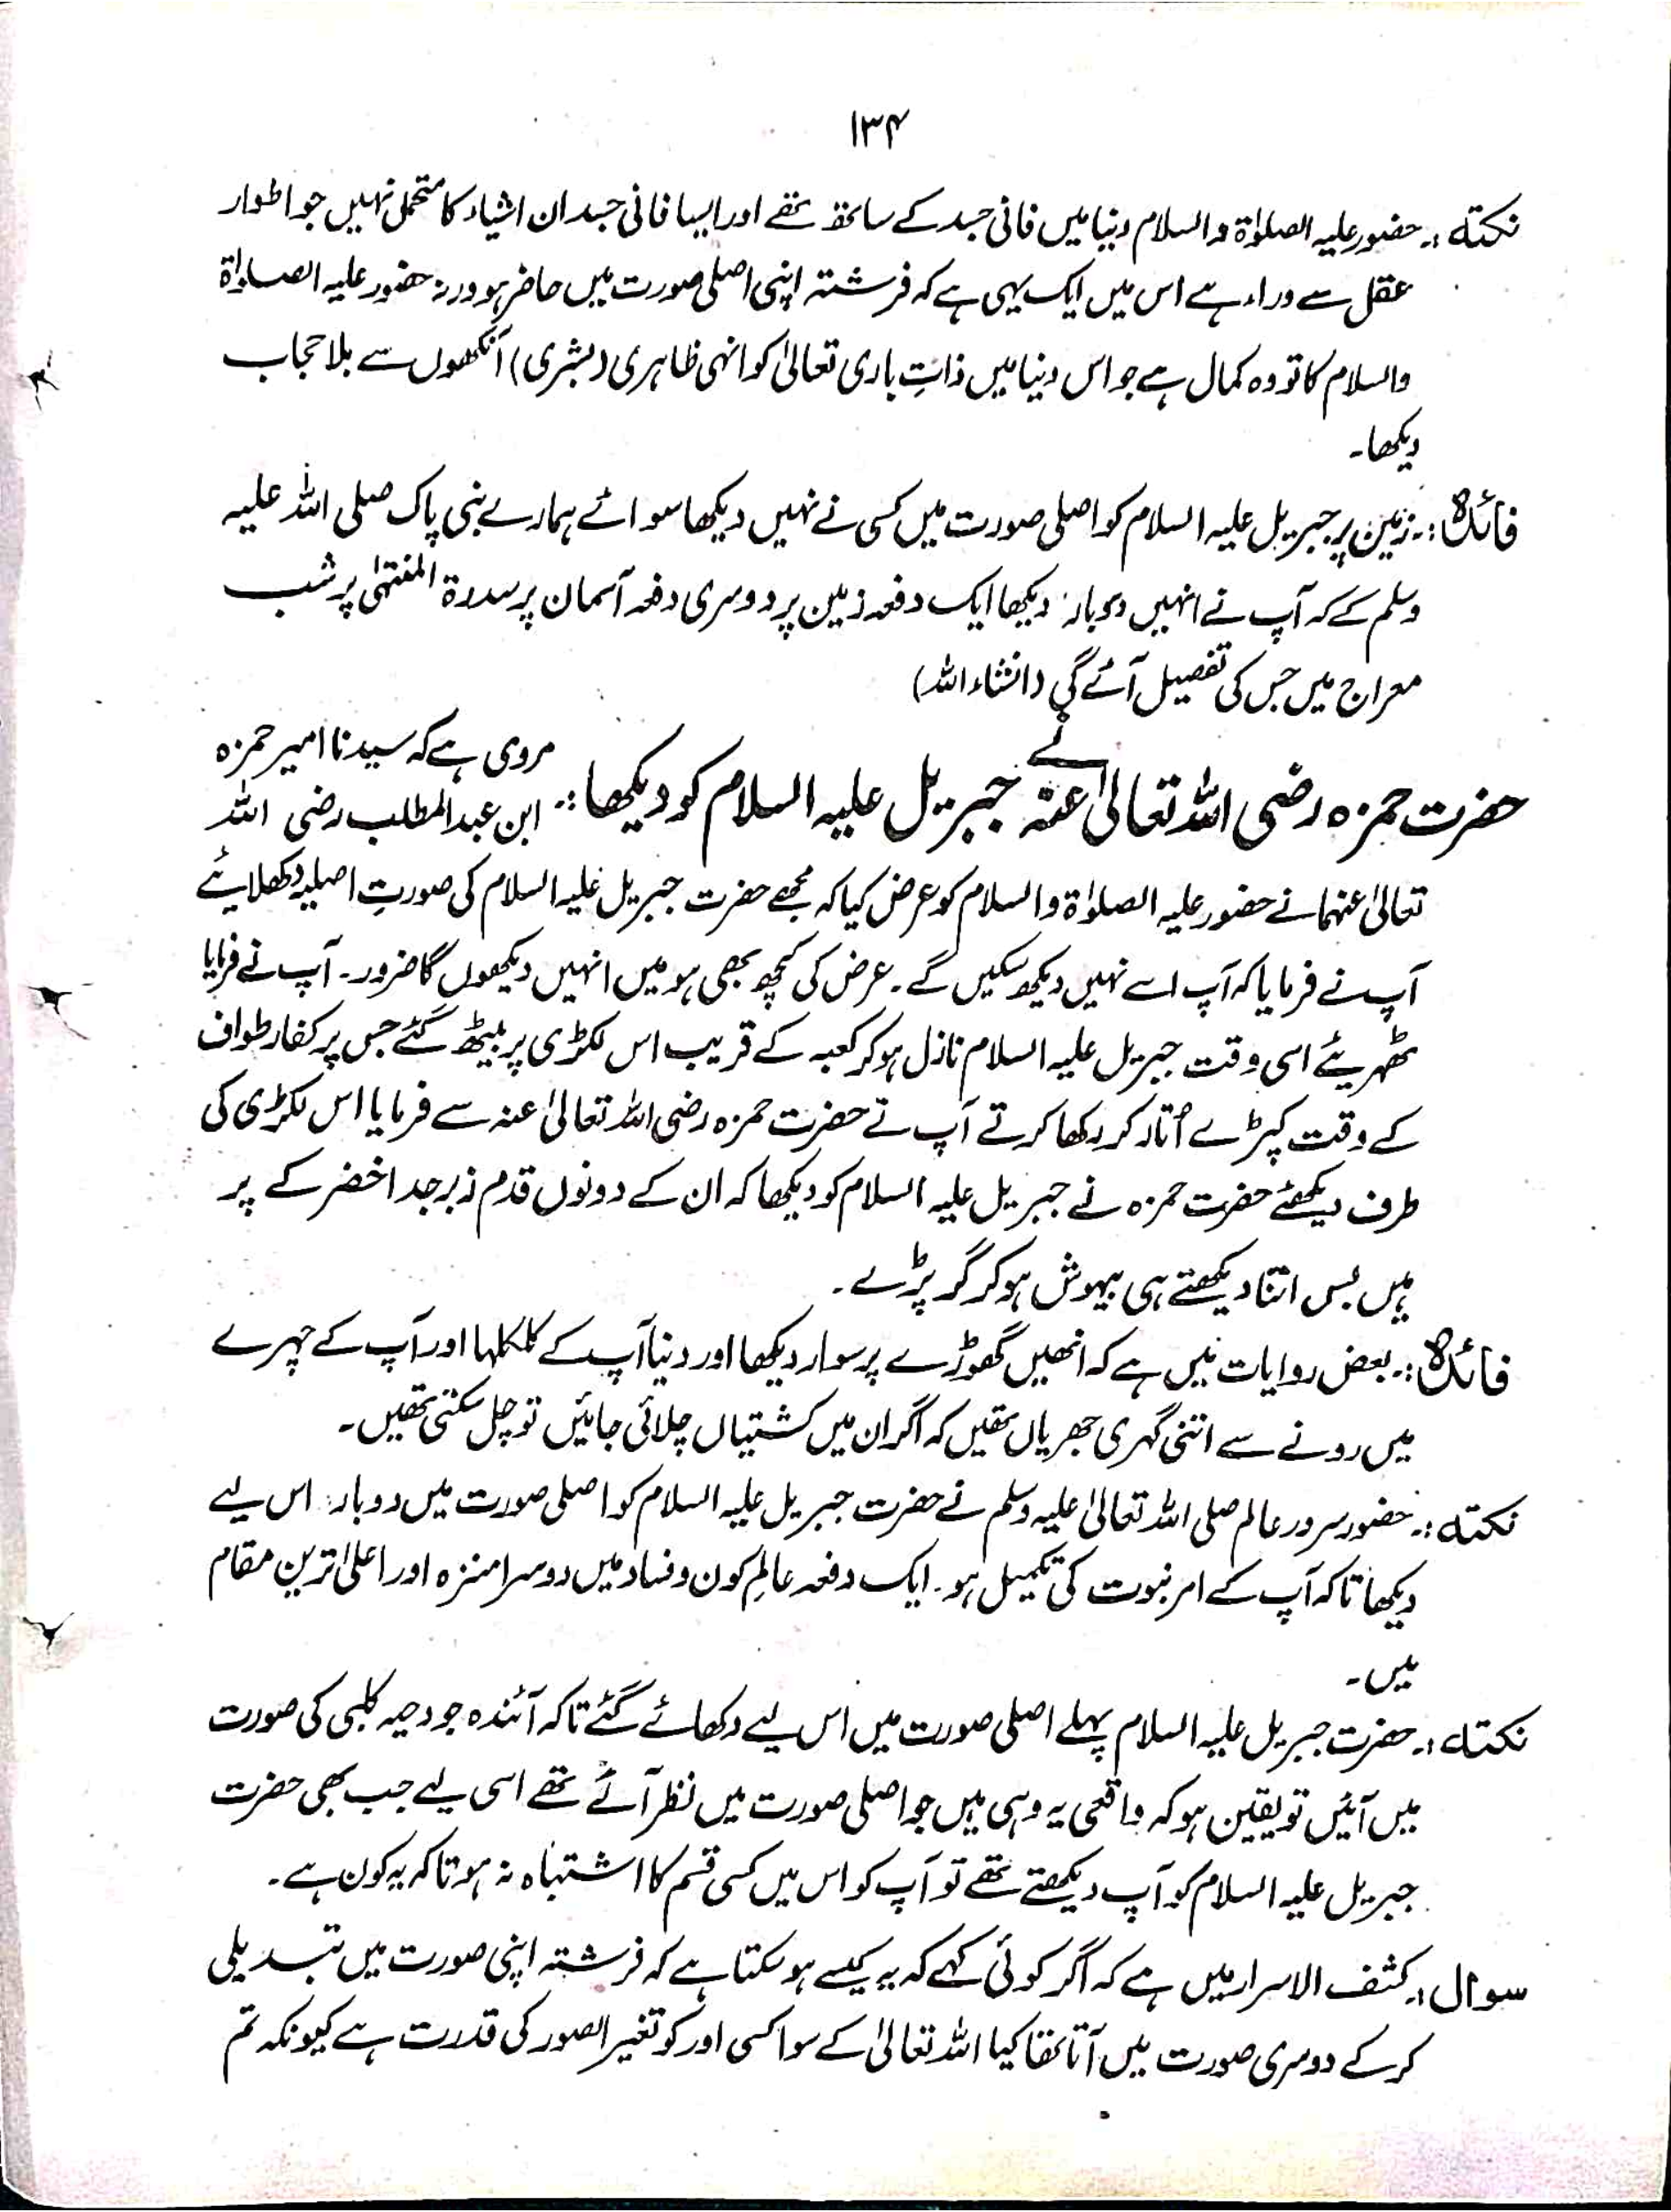 ۱۳۴
نکتہ :۔ حضور علیہ الصلوٰۃ والسلام دنیا میں فانی جسد کے ساتھ تھے اور ایسا فانی جسد ان اشیاء کا متحمل نہیں جو اطوار
عقل سے وراء ہے اس میں ایک یہی ہے کہ فرشتہ اپنی اصلی صورت میں حاضر ہو ورنہ حضور علیہ الصلوٰۃ
والسلام کا تو وہ کمال ہے جو اس دنیا میں ذاتِ باری تعالیٰ کو انہی ظاہری (بشری) آنکھوں سے بلا حجاب
دیکھا۔
فائدہ :۔ زمین پر جبریل علیہ السلام کو اصلی صورت میں کسی نے نہیں دیکھا سوائے ہمارے نبی پاک صلی اللہ علیہ
وسلم کے کہ آپ نے انہیں دوبارہ دیکھا ایک دفعہ زمین پر دوسری دفعہ آسمان پر سدرۃ المنتہیٰ پر شب
معراج میں جس کی تفصیل آئے گی (انشاء اللہ)
حضرت حمزہ رضی اللہ تعالیٰ عنہ نے جبریل علیہ السلام کو دیکھا :۔ مروی ہے کہ سیدنا امیر حمزہ
ابن عبدالمطلب رضی اللہ
تعالیٰ عنہما نے حضور علیہ الصلوٰۃ والسلام کو عرض کیا کہ مجھے حضرت جبریل علیہ السلام کی صورتِ اصلیہ دکھلایئے
آپ نے فرمایا کہ آپ اسے نہیں دیکھ سکیں گے۔ عرض کی کچھ بھی ہو میں انہیں دیکھوں گا ضرور۔ آپ نے فرمایا
ٹھہریئے اسی وقت جبریل علیہ السلام نازل ہو کر کعبہ کے قریب اس لکڑی پر بیٹھ گئے جس پر کفار طواف
کے وقت کپڑے اُتار کر رکھا کرتے آپ نے حضرت حمزہ رضی اللہ تعالیٰ عنہ سے فرمایا اس لکڑی کی
طرف دیکھئے حضرت حمزہ نے جبریل علیہ السلام کو دیکھا کہ ان کے دونوں قدم زبرجد اخضر کے پر
ہیں بس اتنا دیکھتے ہی بیہوش ہو کر گر پڑے۔
فائدہ :۔ بعض روایات میں ہے کہ انھیں گھوڑے پر سوار دیکھا اور دنیا آپ کے کلکلہا اور آپ کے چہرے
میں رونے سے اتنی گہری جھریاں تھیں کہ اگر ان میں کشتیاں چلائی جائیں تو چل سکتی تھیں۔
نکتہ :۔ حضور سرور عالم صلی اللہ تعالیٰ علیہ وسلم نے حضرت جبریل علیہ السلام کو اصلی صورت میں دوبارہ اس لیے
دیکھا تاکہ آپ کے امر نبوت کی تکمیل ہو۔ ایک دفعہ عالمِ کون و فساد میں دوسرا منزہ اور اعلیٰ ترین مقام
میں۔
نکتہ :۔ حضرت جبریل علیہ السلام پہلے اصلی صورت میں اس لیے دکھائے گئے تاکہ آئندہ جو دحیہ کلبی کی صورت
میں آئیں تو یقین ہو کہ واقعی یہ وہی ہیں جو اصلی صورت میں نظر آئے تھے اسی لیے جب بھی حضرت
جبریل علیہ السلام کو آپ دیکھتے تھے تو آپ کو اس میں کسی قسم کا اشتباہ نہ ہوتا کہ یہ کون ہے۔
سوال :۔ کشف الاسرار میں ہے کہ اگر کوئی کہے کہ یہ کیسے ہو سکتا ہے کہ فرشتہ اپنی صورت میں تبدیلی
کر کے دوسری صورت میں آتا تھا کیا اللہ تعالیٰ کے سوا کسی اور کو تغیر الصور کی قدرت ہے کیونکہ تم